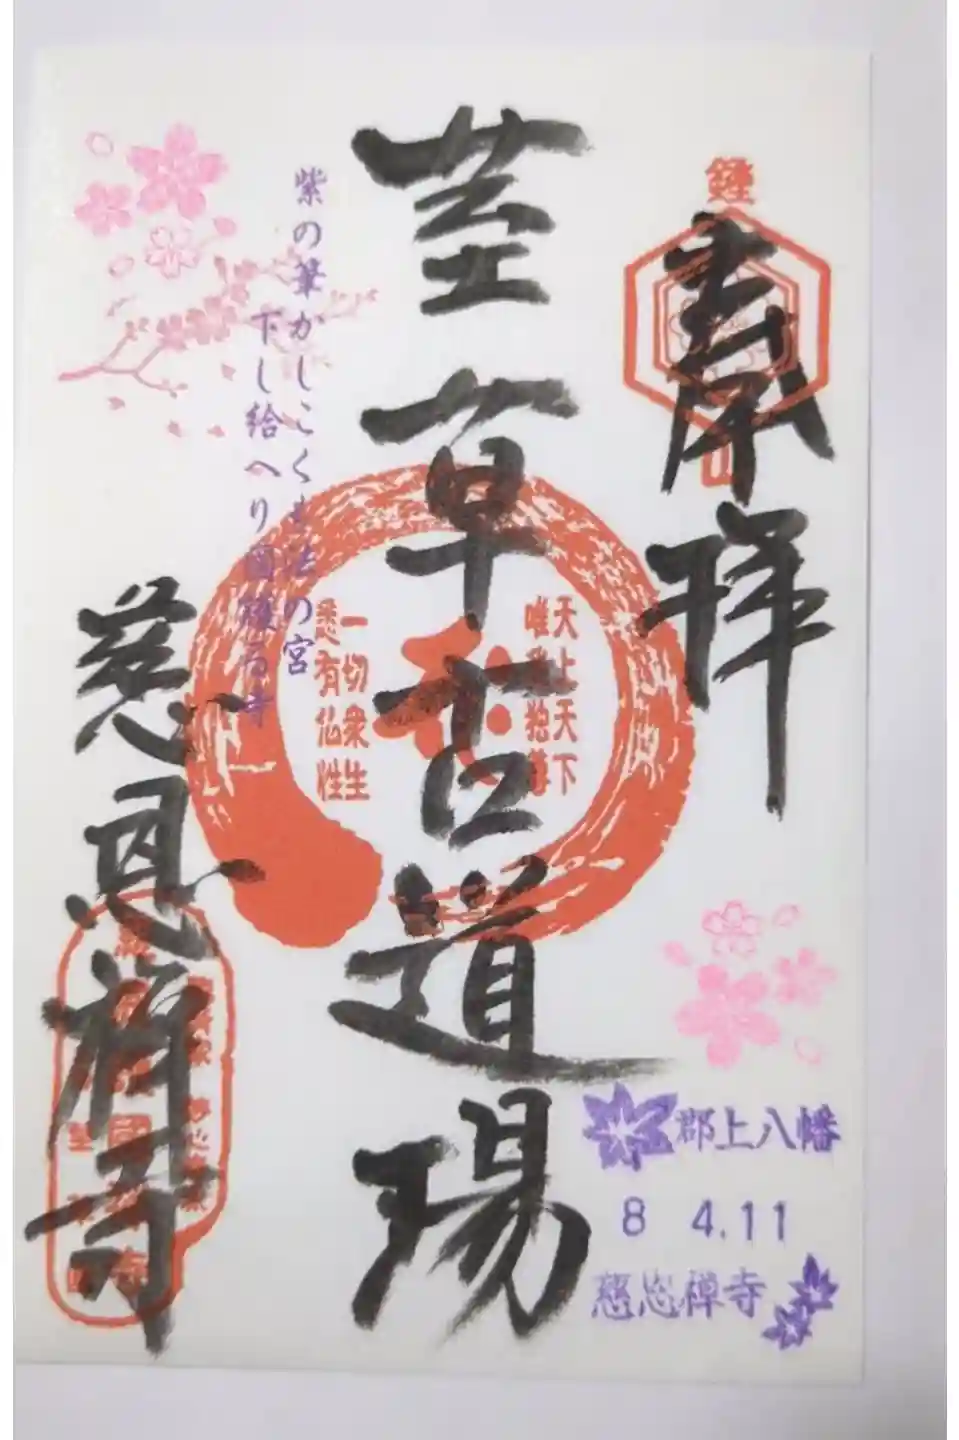 鐘
奉拝
天上天下
唯我独尊
荎草古道場
一切衆生
悉有仏性
紫の筆かしこくも法の宮
下し給へり国護る寺
慈恩禅寺
郡上八幡
8 4.11
慈恩禅寺